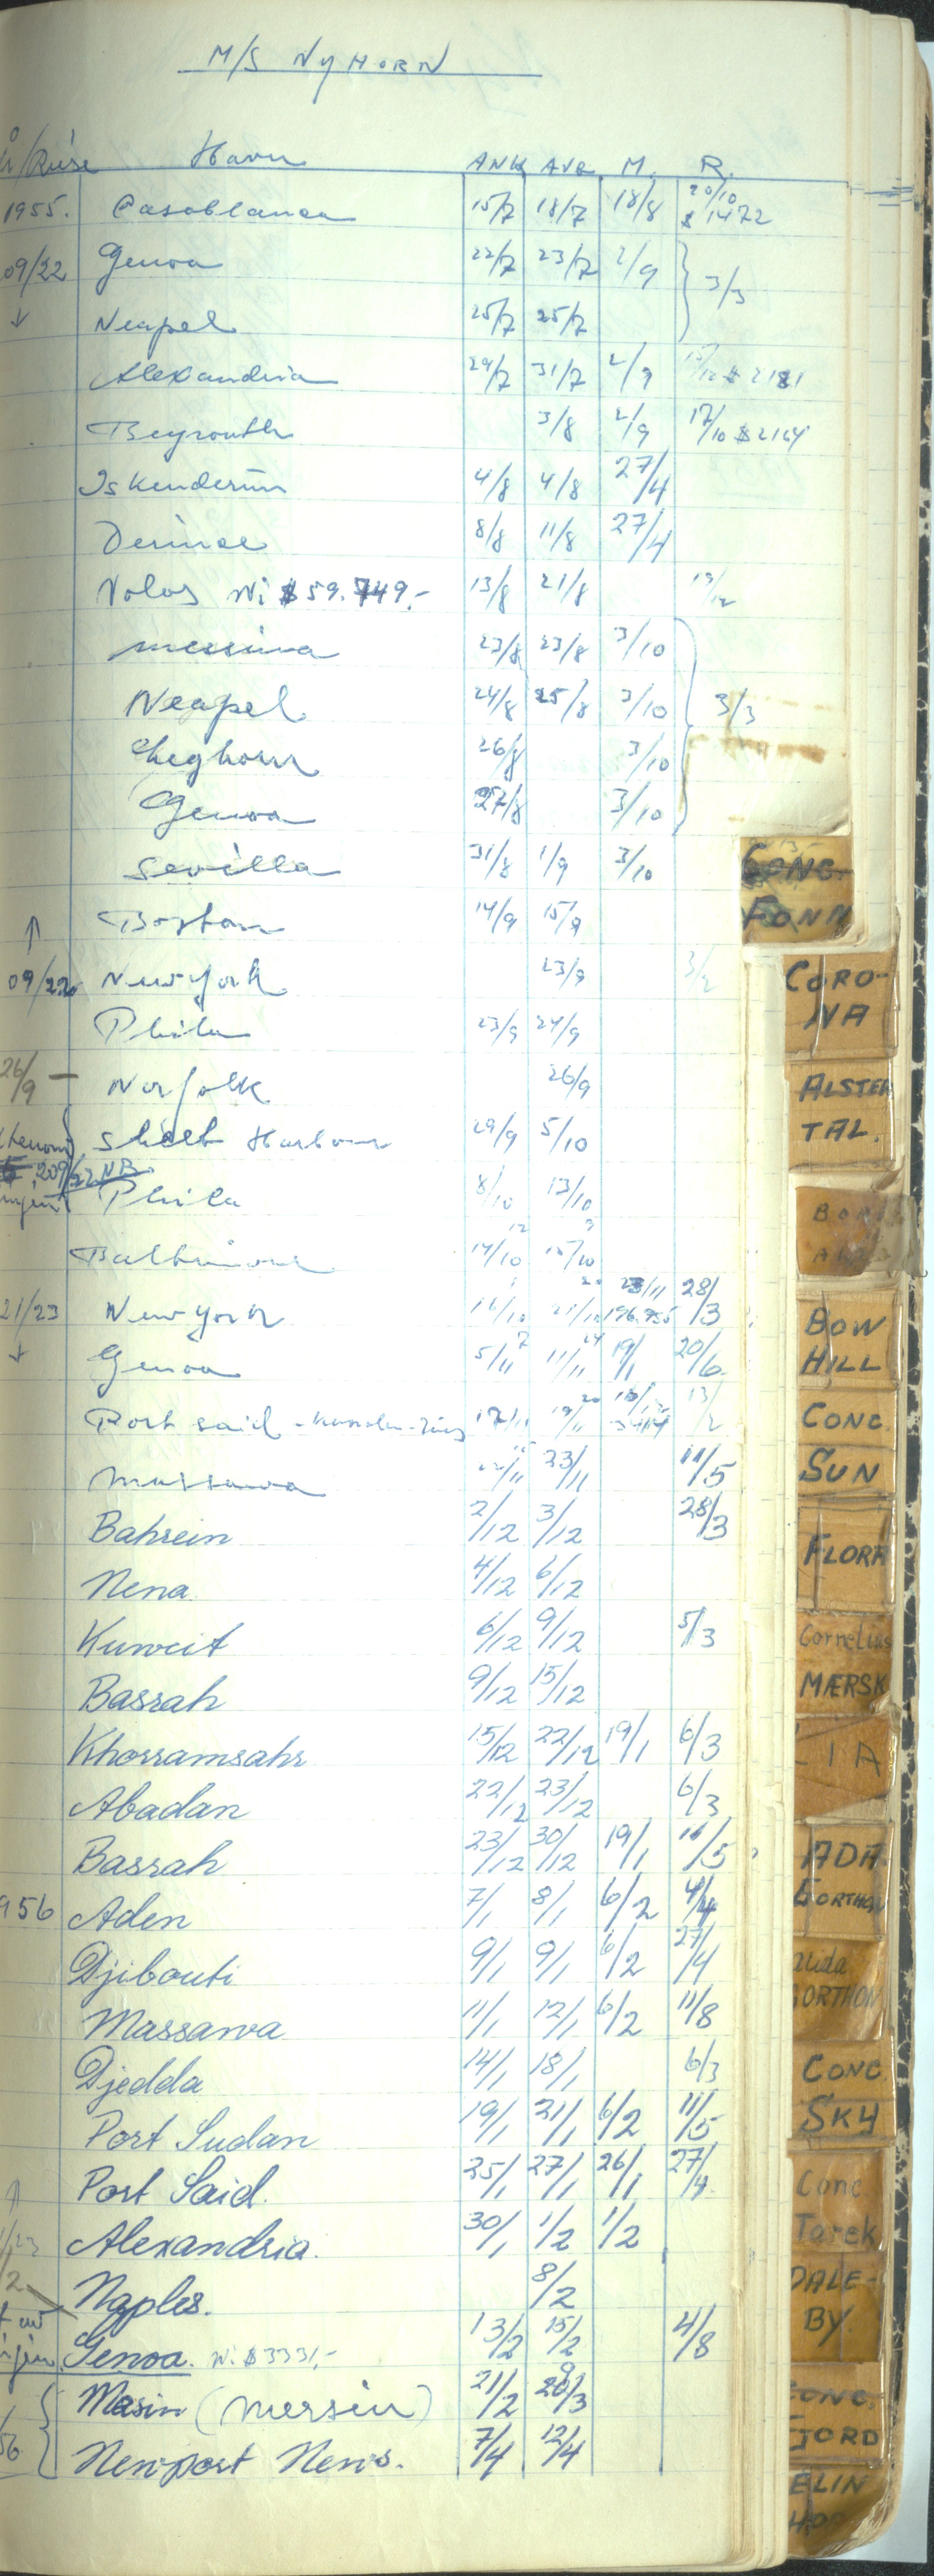 M/S NYHORN
/Reise Havn ANK AVG. M. R.
1955. Casablanca 15/7 18/7 18/8 20/10 $ 1472
09/22 Genoa 22/7 23/7 2/9 3/3
↓ Neapel 25/7 25/7
Alexandria 29/7 31/7 2/9 $ 2181
Beyrouth 3/8 2/9 17/10 $ 2164
Iskenderun 4/8 4/8 27/4
Derince 8/8 11/8 27/4
Volos $ 59.749.- 13/8 21/8 19/12
Messina 23/8 23/8 3/10
Neapel 24/8 25/8 3/10 3/3
Leghorn 26/8 3/10
Genoa 27/8 3/10
Sevilla 31/8 1/9 3/10
↑ Boston 14/9 15/9
09/22 New York 23/9 3/2
Phila 23/9 24/9
26/9 – Norfolk 26/9
Sheet Harbour 29/9 5/10
209/22 NB
Phila 8/10 13/10
Baltimore 14/10 15/10
21/23 New York 16/10 21/10 23/11 28/3
↓ Genoa 5/11 11/11 19/1 20/6
Port said 17/11 19/11 13/2
Massawa 23/11 11/5
Bahrein 2/12 3/12 28/3
Mena 4/12 6/12
Kuweit 6/12 9/12 5/3
Basrah 9/12 15/12
Khorramsahr 15/12 22/12 19/1 6/3
Abadan 22/12 23/12 6/3
Basrah 23/12 30/12 19/1 11/5
956 Aden 7/1 8/1 6/2 4/4
Djibouti 9/1 9/1 6/2 27/4
Massawa 11/1 12/1 6/2 11/8
Djedda 14/1 18/1 6/3
Port Sudan 19/1 21/1 6/2 11/5
↑ Port Said. 25/1 27/1 26/1 27/4
Alexandria. 30/1 1/2 1/2
Naples. 8/2
Genoa. $ 3331,- 13/2 15/2 4/8
Mesin (Mersin) 21/2 20/3
56 Newport News. 7/4 12/4
CONC.
FONN
CORO-
NA
ALSTER
TAL.
BOW
HILL
CONC.
SUN
FLORA
Cornelius
MÆRSK
LIA
ADA
GORTHON
GORTHON
CONC
SKY
Conc
Tarek
DALE-
BY.
CONC.
FJORD
ELIN